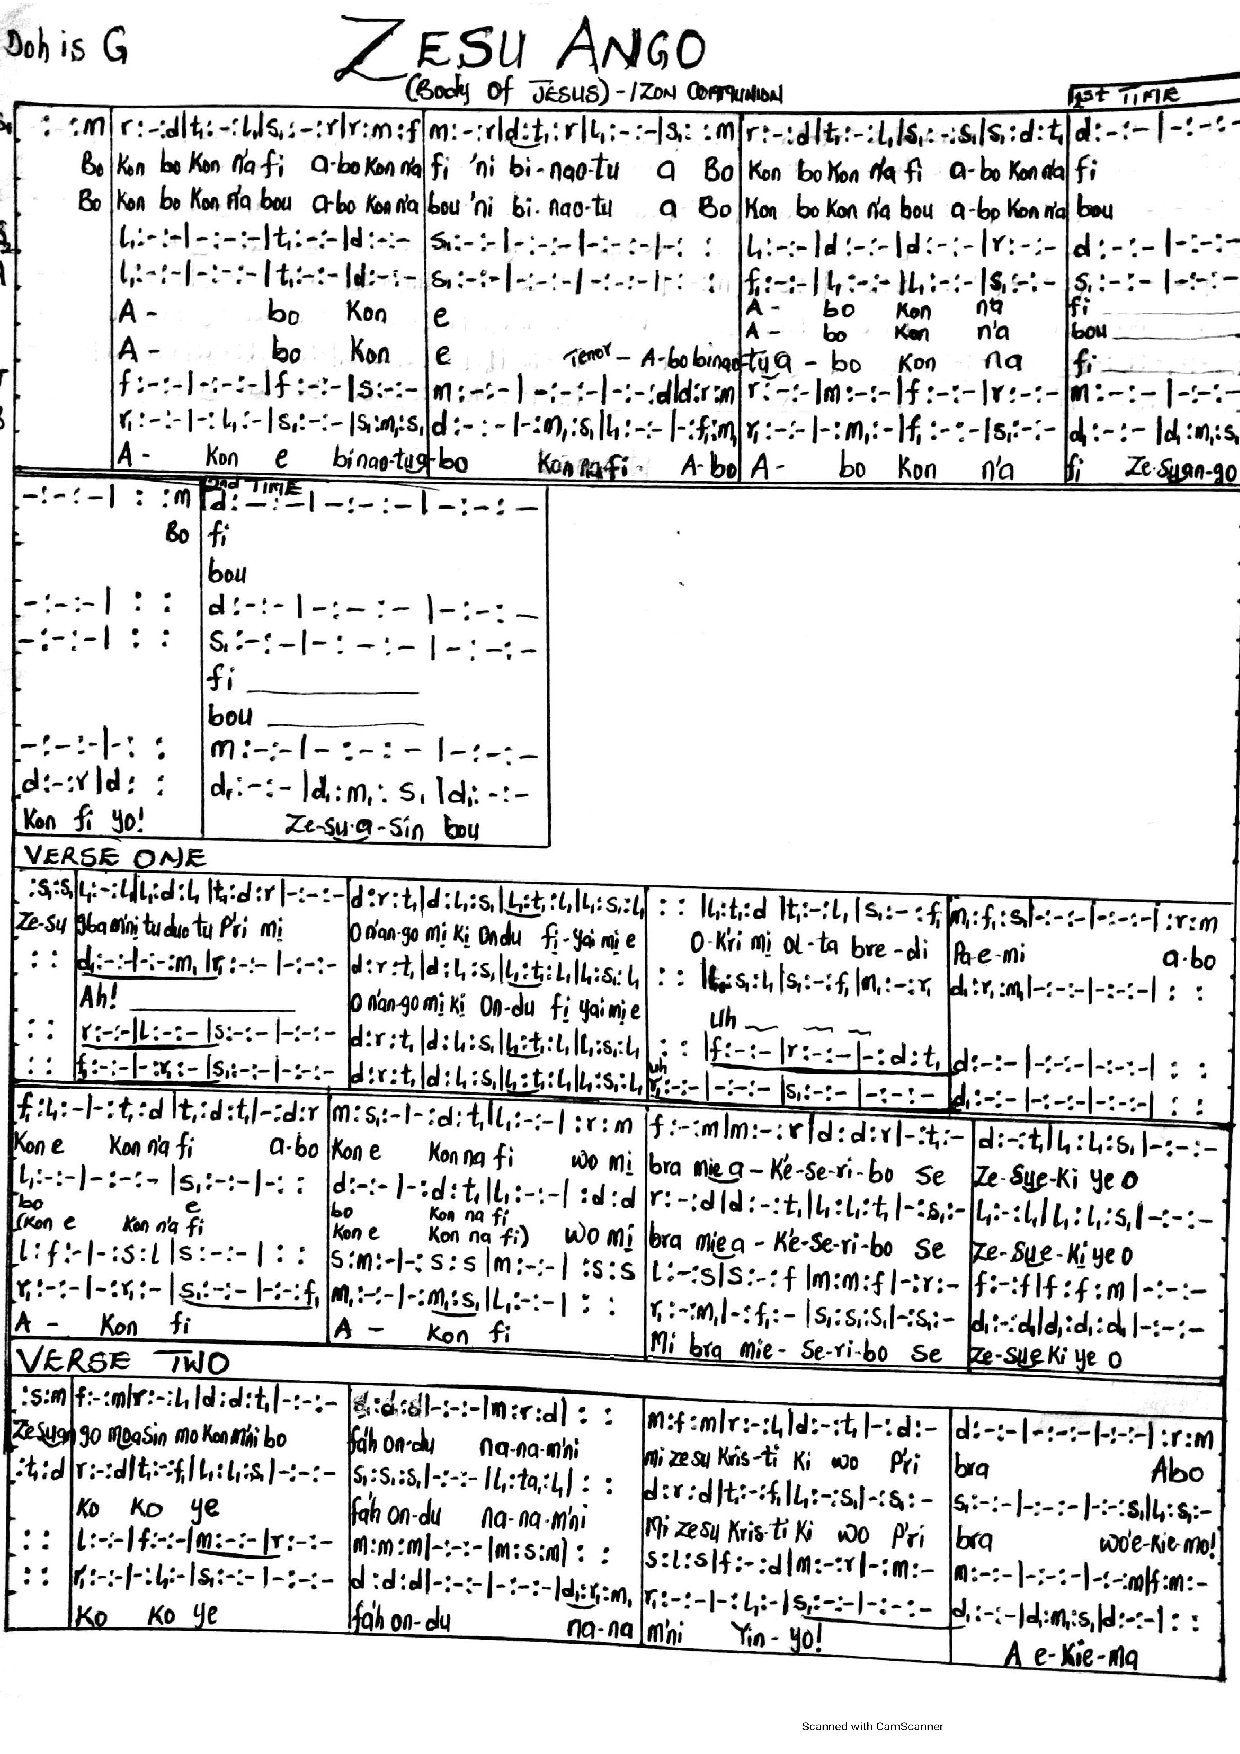 Doh is G
ZESU ANGO
(Body of JESUS) - IZON COMMUNION
1st TIME
: :m| r:-:d|t₁:-:l₁|s₁:-:r|r:m:f| m:-:r|d:t₁:r|l₁:-:-|s₁: :m| r:-:d|t₁:-:l₁|s₁:-:s₁|s₁:d:t₁| d:-:-|-:-:-
Bo Kon bo Kon n'a fi a-bo Kon n'a fi 'ni bi-nao-tu a Bo Kon bo Kon n'a fi a-bo Kon n'a fi
Bo Kon bo Kon n'a bou a-bo Kon n'a bou 'ni bi-nao-tu a Bo Kon bo Kon n'a bou a-bo Kon n'a bou
l₁:-:-|-:-:-|t₁:-:-|d:-:- s₁:-:-|-:-:-|-:-:-|-: : l₁:-:-|d:-:-|d:-:-|r:-:- d:-:-|-:-:-
l₁:-:-|-:-:-|t₁:-:-|d:-:- s₁:-:-|-:-:-|-:-:-|-: : f₁:-:-|l₁:-:-|l₁:-:-|s₁:-:- s₁:-:-|-:-:-
A- bo Kon e A- bo Kon n'a fi
A- bo Kon n'a bou
A- bo Kon e Tenor - A-bo binao-tu a - bo Kon na fi
f:-:-|-:-:-|f:-:-|s:-:- m:-:-|-:-:-|-:-:d|d:r:m r:-:-|m:-:-|f:-:-|r:-:- m:-:-|-:-:-
r₁:-:-|-:l₁:-|s₁:-:-|s₁:m₁:s₁ d:-:-|-:m₁:s₁|l₁:-:-|-:f₁:m₁ r₁:-:-|-:m₁:-|f₁:-:-|s₁:-:- d₁:-:-|d₁:m₁:s₁
A- Kon e binao-tua-bo Kon na fi. A-bo A- bo Kon n'a fi Ze-Suan-go
2nd TIME
-:-:-| : :m d:-:-|-:-:-|-:-:-
Bo fi
bou
-:-:-| : : d:-:-|-:-:-|-:-:-
-:-:-| : : s₁:-:-|-:-:-|-:-:-
fi
bou
-:-:-|-: : m:-:-|-:-:-|-:-:-
d:-:r|d: : d₁:-:-|d₁:m₁:s₁|d₁:-:-
Kon fi yo! Ze-su-a-sin bou
VERSE ONE
:s₁:s₁ l₁:-:l₁|l₁:d:l₁|t₁:d:r|-:-:- d:r:t₁|d:l₁:s₁|l₁:t₁:l₁|l₁:s₁:l₁ : :|l₁:t₁:d|t₁:-:l₁|s₁:-:f₁ m₁:f₁:s₁|-:-:-|-:-:-|:r:m
Ze-su gba m'ni tu duo tu P'ri mi O n'an-go mi Ki Ondu fi-yai mi e O-K'ri mi ol-ta bre-di Pa-e-mi a-bo
: : d:-:-|-:-:m₁|r₁:-:-|-:-:- d:r:t₁|d:l₁:s₁|l₁:t₁:l₁|l₁:s₁:l₁ : :|l₁:s₁:l₁|s₁:-:f₁|m₁:-:r₁ d₁:r₁:m₁|-:-:-|-:-:-| : :
Ah! O n'an-go mi Ki On-du fi yai mi e Uh
: : r:-:-|l₁:-:-|s:-:-|-:-:- d:r:t₁|d:l₁:s₁|l₁:t₁:l₁|l₁:s₁:l₁ : :|f:-:-|r:-:-|-:d:t₁ d:-:-|-:-:-|-:-:-| : :
: : f:-:-|-:r₁:-|s₁:-:-|-:-:- d:r:t₁|d:l₁:s₁|l₁:t₁:l₁|l₁:s₁:l₁ Uh r₁:-:-|-:-:-|s₁:-:-|-:-:- d₁:-:-|-:-:-|-:-:-| : :
f₁:l₁:-|-:t₁:d|t₁:d:t₁|-:d:r m:s₁:-|-:d:t₁|l₁:-:-|:r:m f:-:m|m:-:r|d:d:r|-:t₁:- d:-:t₁|l₁:l₁:s₁|-:-:-
Kon e Kon n'a fi a-bo Kon e Kon na fi wo mi bra mie a - K'e-se-ri-bo se Ze-Sue-Ki ye O
l₁:-:-|-:-:-|s₁:-:-|-: : d:-:-|-:d:t₁|l₁:-:-|:d:d r:-:d|d:-:t₁|l₁:l₁:t₁|-:s₁:- l₁:-:l₁|l₁:l₁:s₁|-:-:-
bo e bo Kon na fi
(Kon e Kon n'a fi Kon e Kon na fi) wo mi bra mie a - K'e-Se-ri-bo Se Ze-Sue-Ki ye O
l:f:-|-:s:l|s:-:-| : : s:m:-|-:s:s|m:-:-|:s:s l:-:s|s:-:f|m:m:f|-:r:- f:-:f|f:f:m|-:-:-
r₁:-:-|-:r₁:-|s₁:-:-|-:-:f₁ m₁:-:-|-:m₁:s₁|l₁:-:-| : : r₁:-:m₁|-:f₁:-|s₁:s₁:s₁|-:s₁:- d₁:-:d₁|d₁:d₁:d₁|-:-:-
A - Kon fi A - Kon fi Mi bra mie- Se-ri-bo se Ze-Sue Ki ye O
VERSE TWO
:s:m f:-:m|r:-:l₁|d:d:t₁|-:-:- d:d:d|-:-:-|m:r:d| : : m:f:m|r:-:l₁|d:-:t₁|-:d:- d:-:-|-:-:-|-:-:-|:r:m
Ze Suan go moa Sin mo Kon m'ni bo fa'h on-du na-na-m'ni mi zesu Kris-ti Ki wo P'ri bra Abo
:t₁:d r:-:d|t₁:-:f₁|l₁:l₁:s₁|-:-:- s₁:s₁:s₁|-:-:-|l₁:ta₁:l₁| : : d:r:d|t₁:-:f₁|l₁:-:s₁|-:s₁:- s₁:-:-|-:-:-|-:-:s₁|l₁:s₁:-
Ko Ko ye fa'h on-du na-na-m'ni Mi zesu Kris-ti Ki wo P'ri bra wo'e-Kie-mo!
: : l:-:-|f:-:-|m:-:-|r:-:- m:m:m|-:-:-|m:s:m| : : s:l:s|f:-:d|m:-:r|-:m:- m:-:-|-:-:-|-:-:m|f:m:-
: : r₁:-:-|-:l₁:-|s₁:-:-|-:-:- d:d:d|-:-:-|-:-:-|d₁:r₁:m₁ r₁:-:-|-:l₁:-|s₁:-:-|-:-:- d₁:-:-|d:m₁:s₁|d:-:-| : :
Ko Ko ye fa'h on-du na-na m'ni Yin-yo! A e-Kie-ma
Scanned with CamScanner